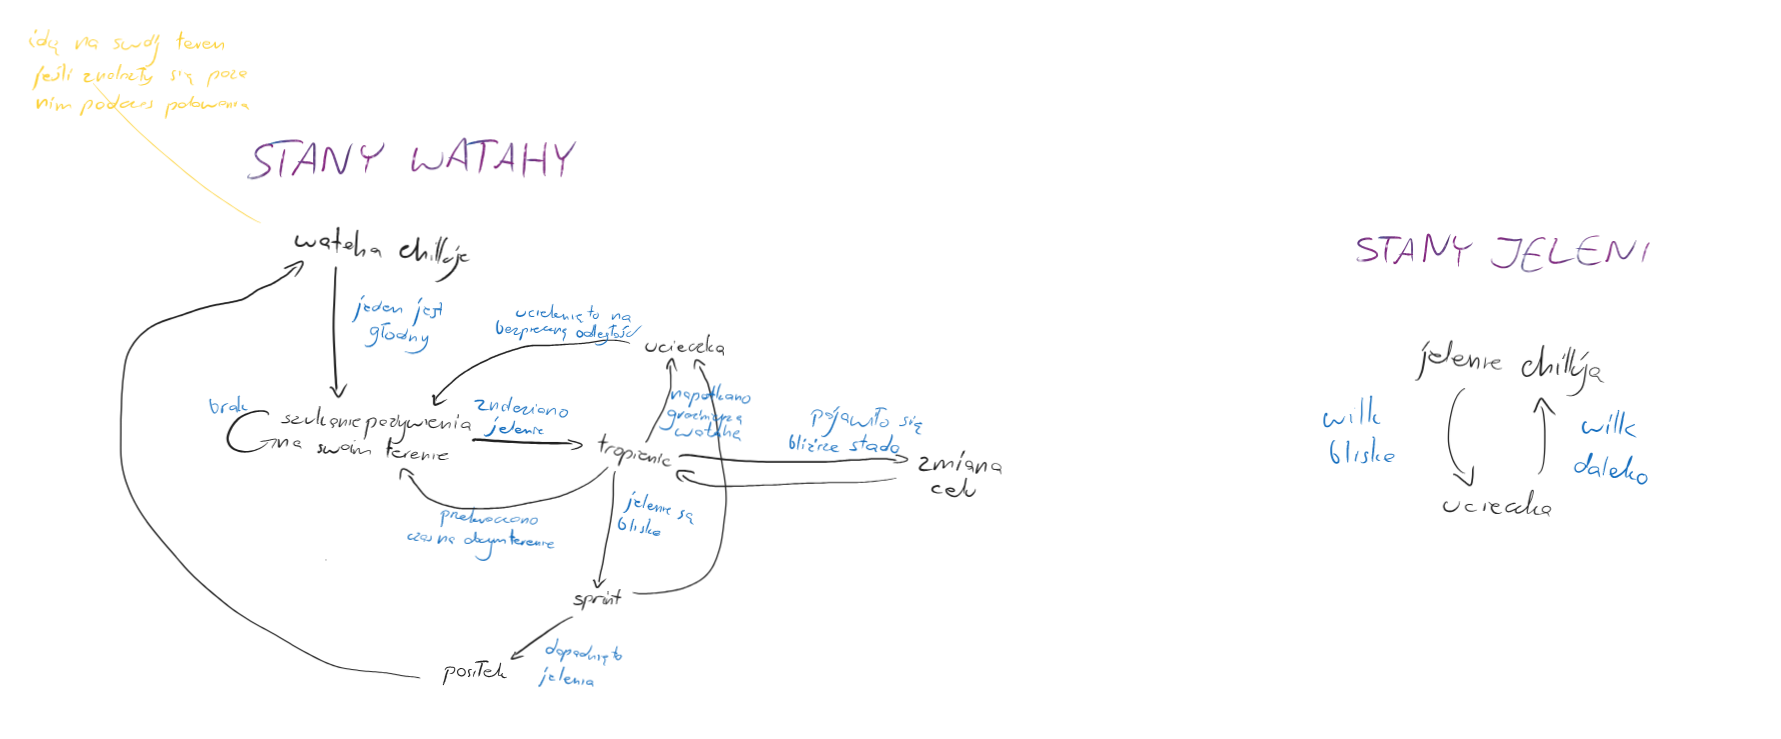 idą na swój teren
jeśli znalazły się poza
nim podczas polowania
STANY WATAHY
wataha chilluje
jeden jest
głodny
ucieknięto na
bezpieczną odległość
ucieczka
brak
szukanie pożywienia
na swoim terenie
znaleziono
jelenie
napotkano
groźniejszą
watahę
tropienie
pojawiło się
bliższe stado
zmiana
celu
przekroczono
czas na obcym terenie
jelenie są
blisko
sprint
dopadnięto
jelenia
posiłek
STANY JELENI
jelenie chillują
wilk
blisko
wilk
daleko
ucieczka